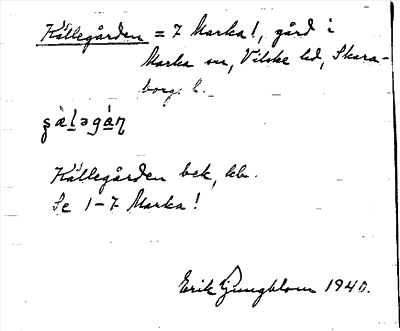 Källegården = 7 Marka!, gård i
Marka sn, Vilske hd, Skara-
borgs l.
ʂàlegáɳ
Källegården bek, kb.
Se 1-7 Marka!
Erik Ljungblom 1940.